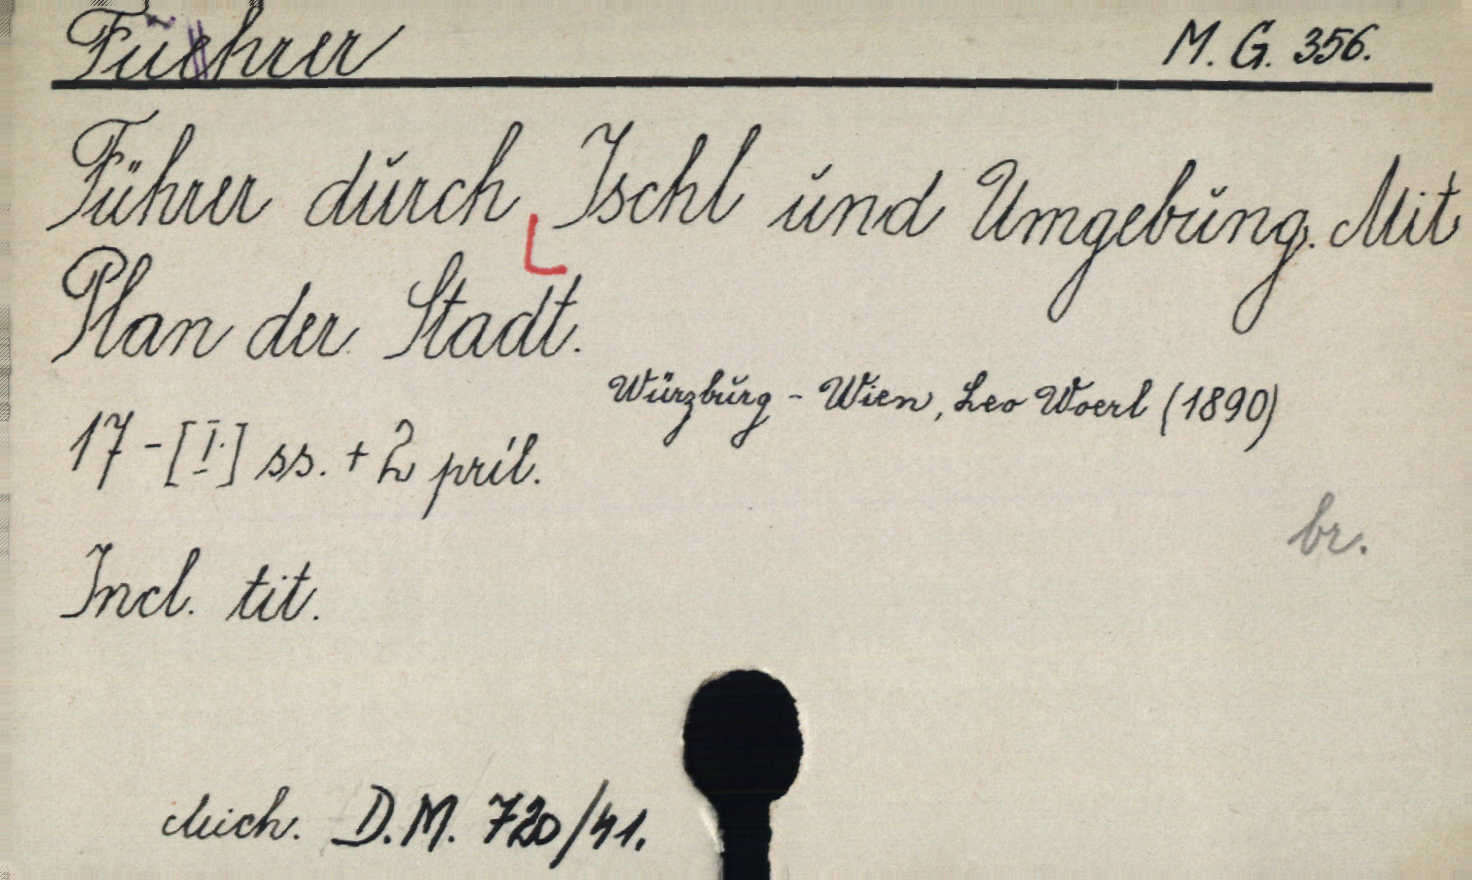 Fuehrer M. G. 356.
Führer durch Ischl und Umgebung. Mit
Plan der Stadt.
Würzburg - Wien, Leo Woerl (1890)
17 - [I.] ss. + 2 príl.
br.
Incl. tit.
Mich. D.M. 720/41.